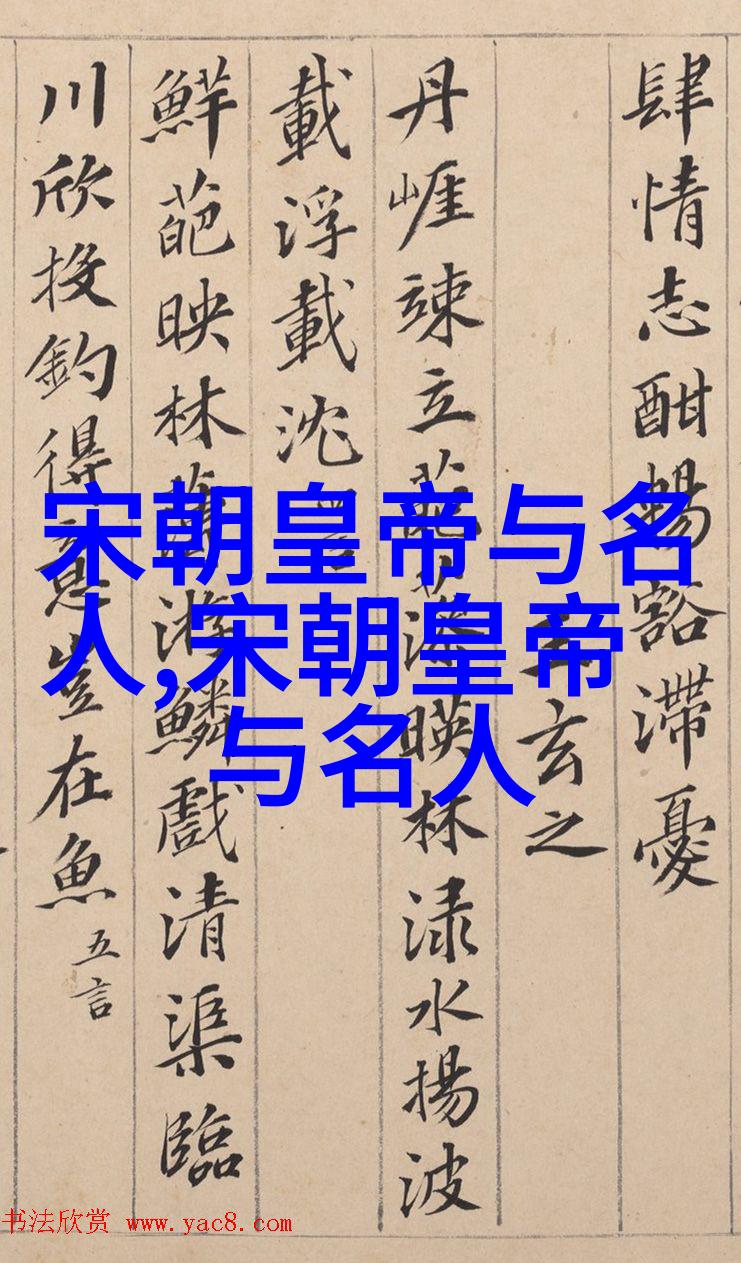 肆情志酣暢豁滯憂
玄之
丹崕竦立葩藻暎林渌水揚波
載浮載沈
鮮葩映林薄游鱗戲清渠臨
川欣投釣得意豈在魚 五言
宋朝皇帝与名
人,宋朝皇帝
与名人
书法欣赏 www.yac8.com